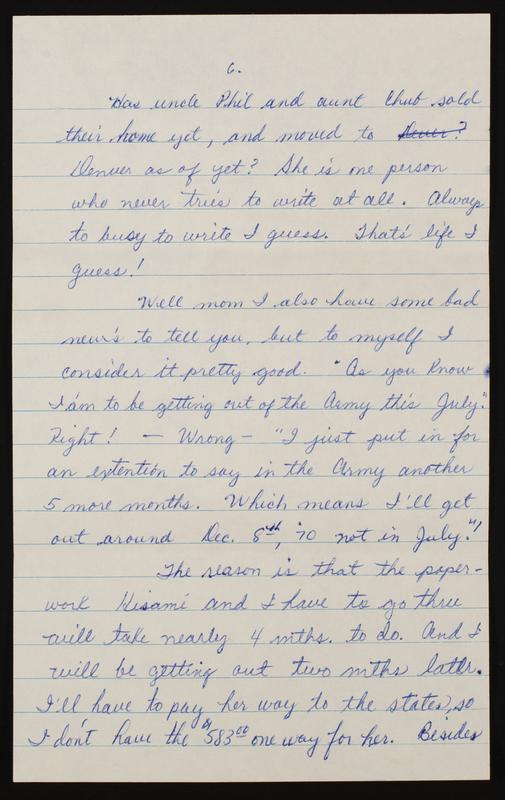 6.
Has uncle Phil and aunt Chub sold
their home yet, and moved to Dever?
Denver as of yet? She is one person
who never tries to write at all. Always
to busy to write I guess. That's life I
guess!
Well mom I also have some bad
new's to tell you, but to myself I
consider it pretty good. "As you know
I'am to be getting out of the Army this July."
Right! — Wrong — "I just put in for
an extention to say in the Army another
5 more months. Which means I'll get
out around Dec. 8th, '70 not in July."!
The reason is that the paper-
work Hisami and I have to go thru
will take nearly 4 mths. to do. And I
will be getting out two mths later.
I'll have to pay her way to the states, so
I don't have the $583.00 one way for her. Besides